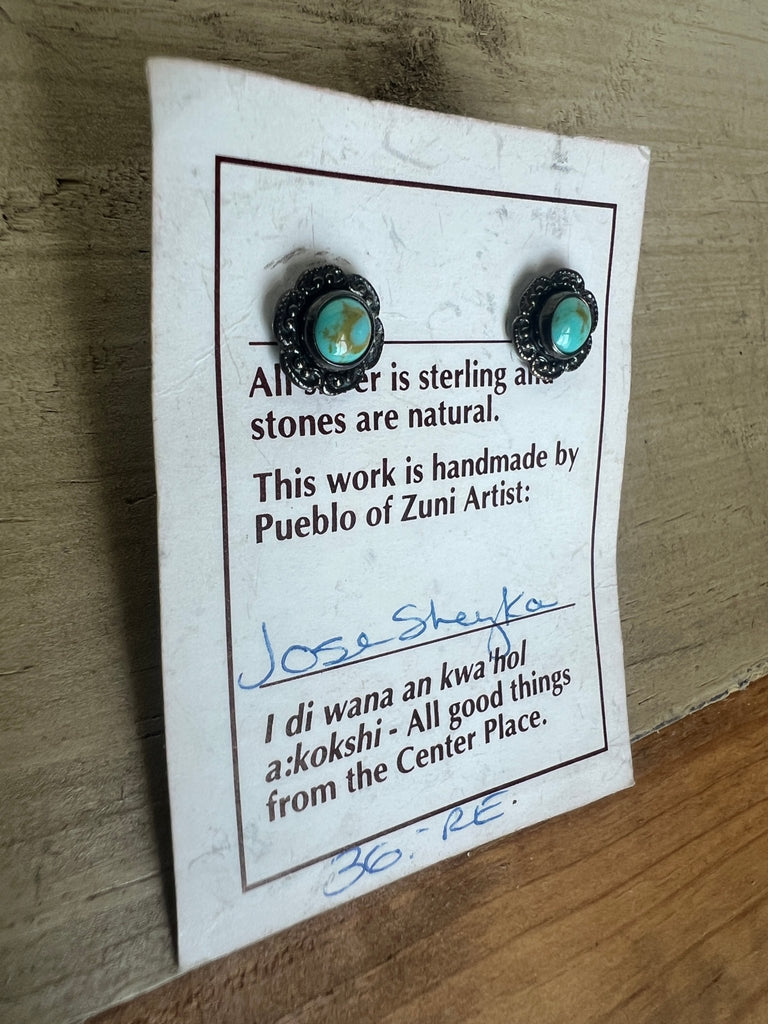 All silver is sterling and
stones are natural.
This work is handmade by
Pueblo of Zuni Artist:
Jose Sheyka
I di wana an kwa'hol
a:kokshi - All good things
from the Center Place.
36.- RE.